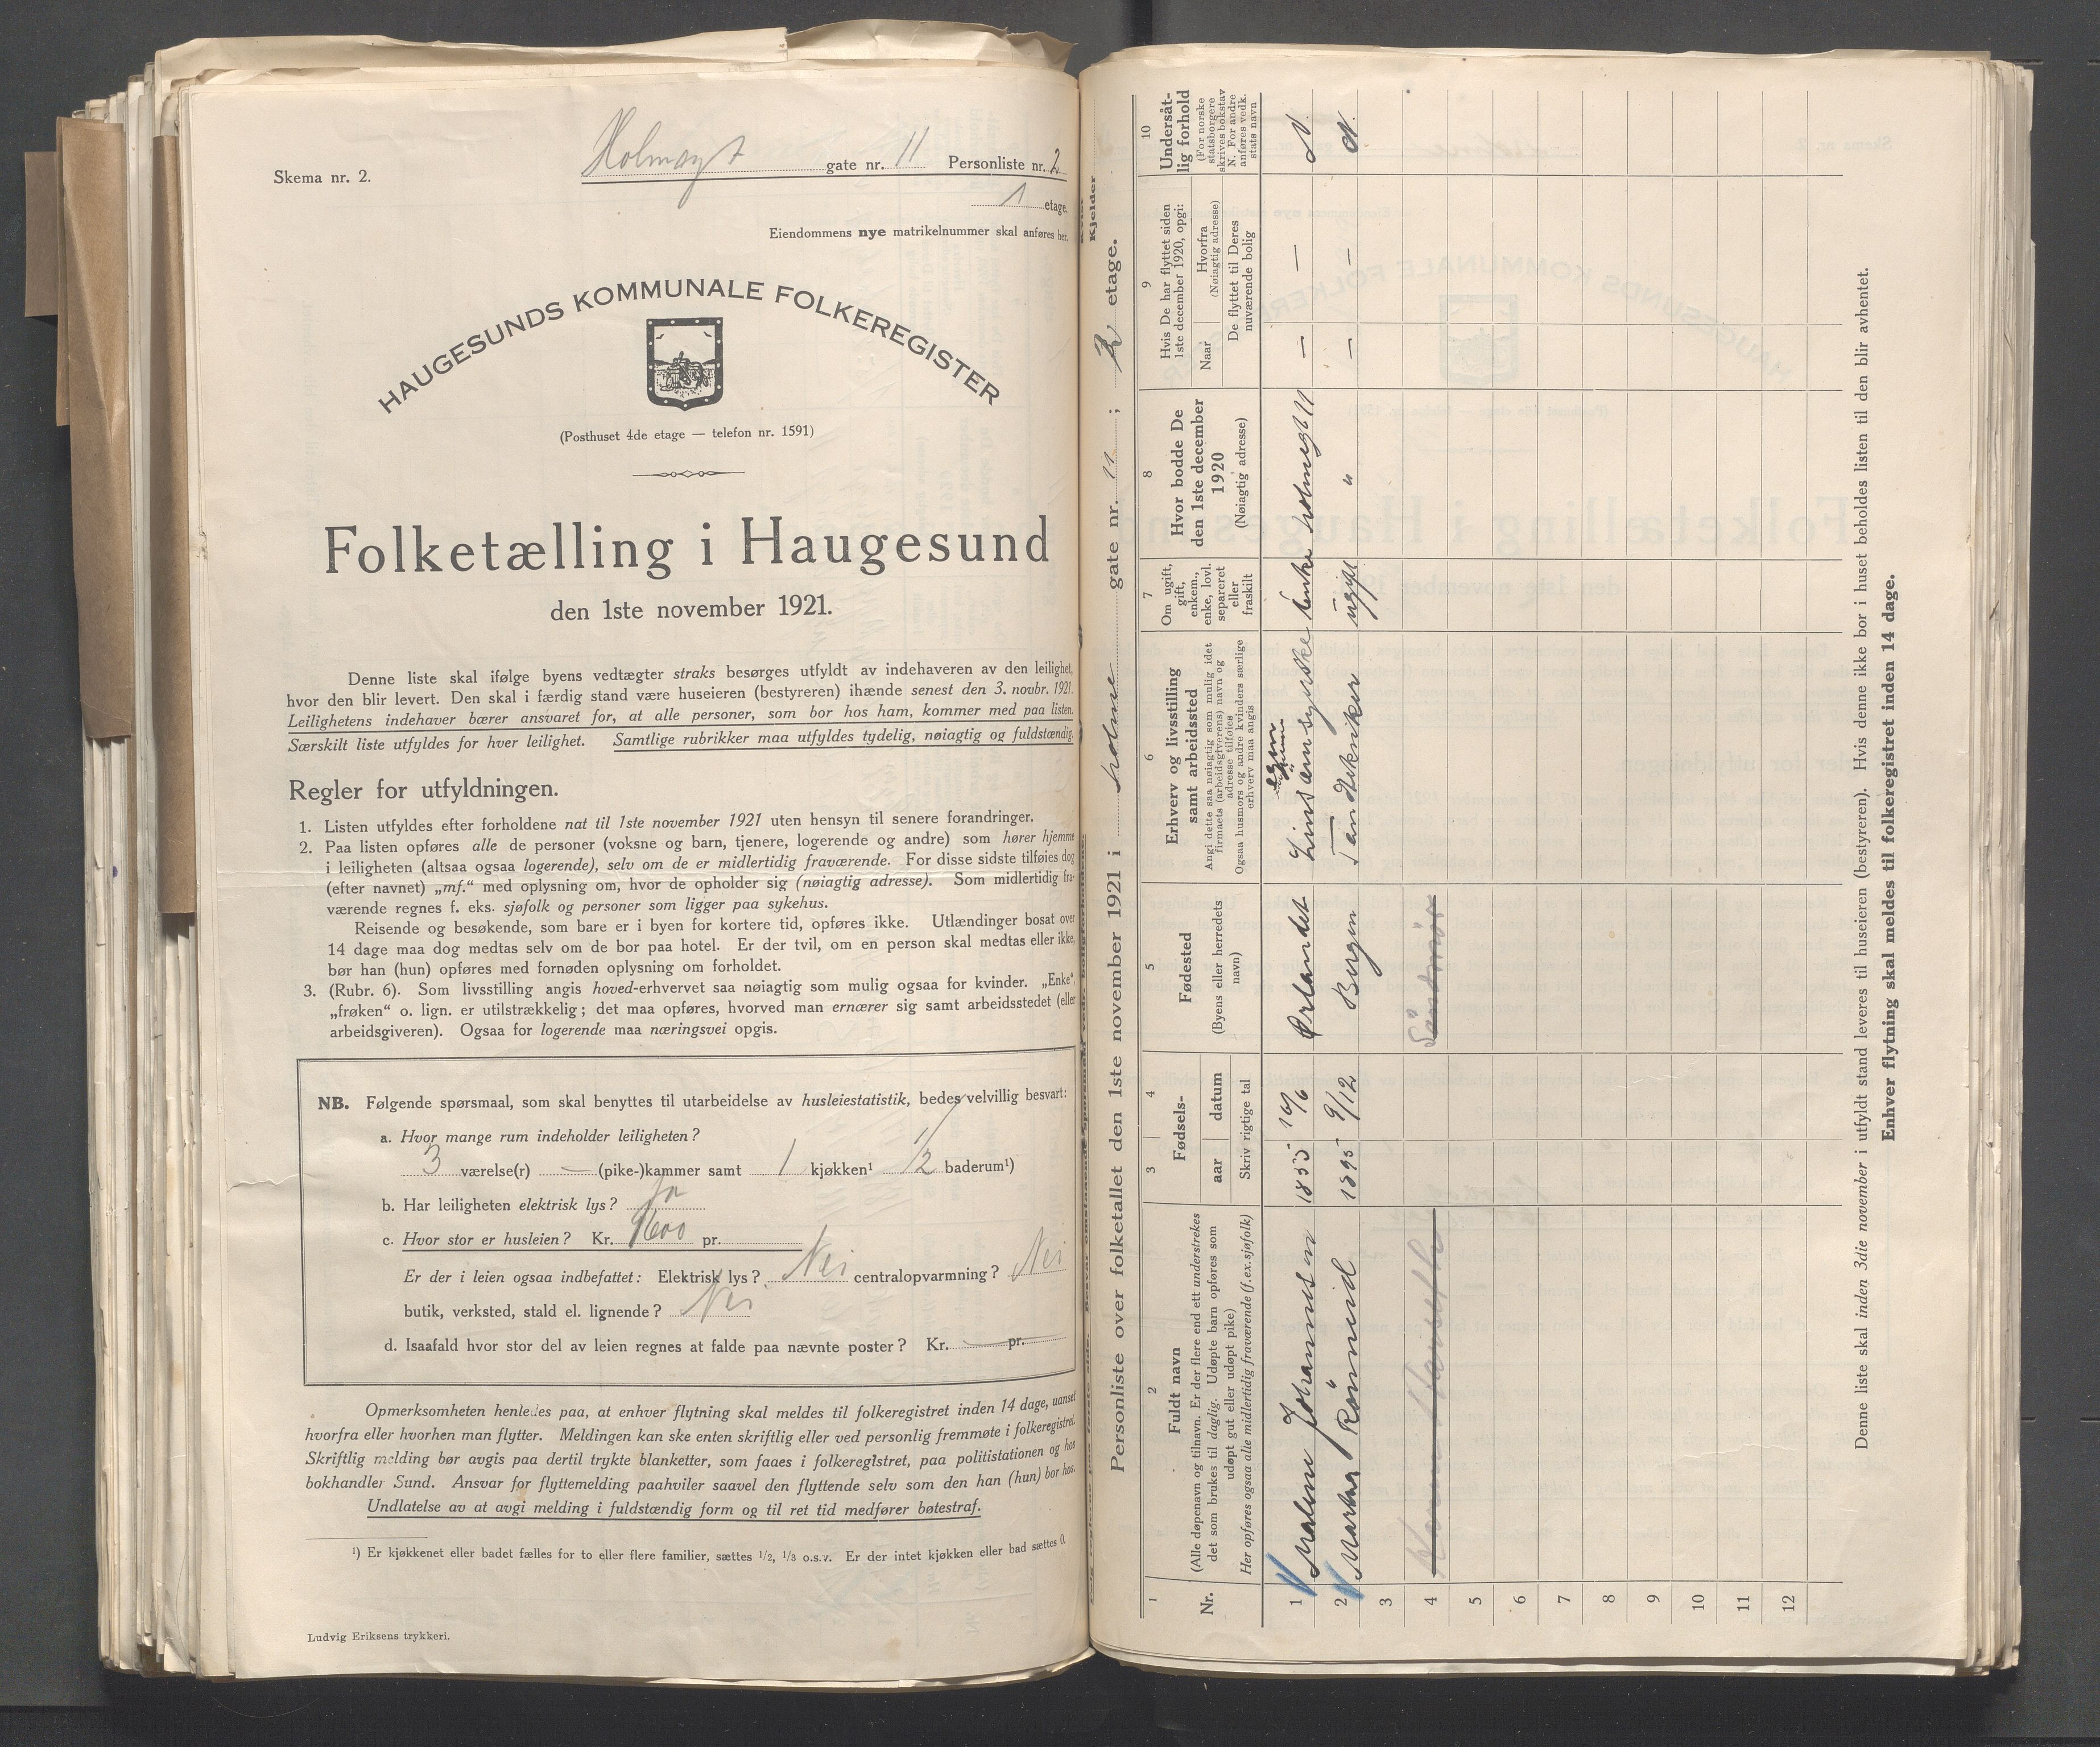 Skema nr. 2.
Holmegt gate nr. 11 Personliste nr. 2
1 etage.
Eiendommens nye matrikelnummer skal anføres her.
HAUGESUNDS KOMMUNALE FOLKEREGISTER
(Posthuset 4de etage — telefon nr. 1591)
Folketælling i Haugesund
den 1ste november 1921.
Denne liste skal ifølge byens vedtægter straks besørges utfyldt av indehaveren av den leilighet,
hvor den blir levert. Den skal i færdig stand være huseieren (bestyreren) ihænde senest den 3. novbr. 1921.
Leilighetens indehaver bærer ansvaret for, at alle personer, som bor hos ham, kommer med paa listen.
Særskilt liste utfyldes for hver leilighet. Samtlige rubrikker maa utfyldes tydelig, nøiagtig og fuldstændig.
Regler for utfyldningen.
1. Listen utfyldes efter forholdene nat til 1ste november 1921 uten hensyn til senere forandringer.
2. Paa listen opføres alle de personer (voksne og barn, tjenere, logerende og andre) som hører hjemme
i leiligheten (altsaa ogsaa logerende), selv om de er midlertidig fraværende. For disse sidste tilføies dog
(efter navnet) „mf.“ med oplysning om, hvor de opholder sig (nøiagtig adresse). Som midlertidig fra-
værende regnes f. eks. sjøfolk og personer som ligger paa sykehus.
Reisende og besøkende, som bare er i byen for kortere tid, opføres ikke. Utlændinger bosat over
14 dage maa dog medtas selv om de bor paa hotel. Er der tvil, om en person skal medtas eller ikke,
bør han (hun) opføres med fornøden oplysning om forholdet.
3. (Rubr. 6). Som livsstilling angis hoved-erhvervet saa nøiagtig som mulig ogsaa for kvinder. „Enke“,
„frøken“ o. lign. er utilstrækkelig; det maa opføres, hvorved man ernærer sig samt arbeidsstedet (eller
arbeidsgiveren). Ogsaa for logerende maa næringsvei opgis.
NB. Følgende spørsmaal, som skal benyttes til utarbeidelse av husleiestatistik, bedes velvillig besvart:
a. Hvor mange rum indeholder leiligheten?
3 værelse(r) — (pike-)kammer samt 1 kjøkken¹ 1/2 baderum¹)
b. Har leiligheten elektrisk lys? Ja
c. Hvor stor er husleien? Kr. 1600 pr.
Er der i leien ogsaa indbefattet: Elektrisk lys? Nei centralopvarmning? Nei
butik, verksted, stald el. lignende? Nei
d. Isaafald hvor stor del av leien regnes at falde paa nævnte poster? Kr. — pr.
Opmerksomheten henledes paa, at enhver flytning skal meldes til folkeregistret inden 14 dage, uanset
hvorfra eller hvorhen man flytter. Meldingen kan ske enten skriftlig eller ved personlig fremmøte i folkeregistret.
Skriftlig melding bør avgis paa dertil trykte blanketter, som faaes i folkeregistret, paa politistationen og hos
bokhandler Sund. Ansvar for flyttemelding paahviler saavel den flyttende selv som den han (hun) bor hos.
Undlatelse av at avgi melding i fuldstændig form og til ret tid medfører bøtestraf.
¹) Er kjøkkenet eller badet fælles for to eller flere familier, sættes 1/2, 1/3 o.s.v. Er der intet kjøkken eller bad sættes 0.
Ludvig Eriksens trykkeri.
Kjelder
Personliste over folketallet den 1ste november 1921 i Holme gate nr. 11 ; 2 etage.
1 Nr.
2 Fuldt navn
(Alle døpenavn og tilnavn. Er der flere end ett understrekes
det som brukes til daglig. Udøpte barn opføres som
udøpt gut eller udøpt pike)
Her opføres ogsaa alle midlertidig fraværende (f.ex.sjøfolk)
3 4 Fødsels-
aar datum
Skriv rigtige tal
5 Fødested
(Byens eller herredets
navn)
6 Erhverv og livsstilling
samt arbeidssted
Angi dette saa nøiagtig som mulig idet
firmaets (arbeidsgiverens) navn og
adresse tilføies
Ogsaa husmors og andre kvinders særlige
erhverv maa angis
7 Om ugift,
gift,
enkem.,
enke, lovl.
separeret
eller
fraskilt
8 Hvor bodde De
den 1ste december
1920
(Nøiagtig adresse)
9 Hvis De har flyttet siden
1ste december 1920, opgi:
Naar Hvorfra
(Nøiagtig adresse)
De flyttet til Deres
nuværende bolig
10 Undersåt-
lig forhold
(For norske
statsborgere
skrives bokstav
N. For andre
anføres vedk.
stats navn
1 Malene Johannesen 1855 Ørlandet Linsømsyerske Enke Holmegt 11 — — N.
2 Martha Rømmid 1895 9/12 Bergen Tandtekniker ugift " — — N.
3
4 Søndmør
5
6
7
8
9
10
11
12
Denne liste skal inden 3die november i utfyldt stand leveres til huseieren (bestyreren). Hvis denne ikke bor i huset beholdes listen til den blir avhentet.
Enhver flytning skal meldes til folkeregistret inden 14 dage.